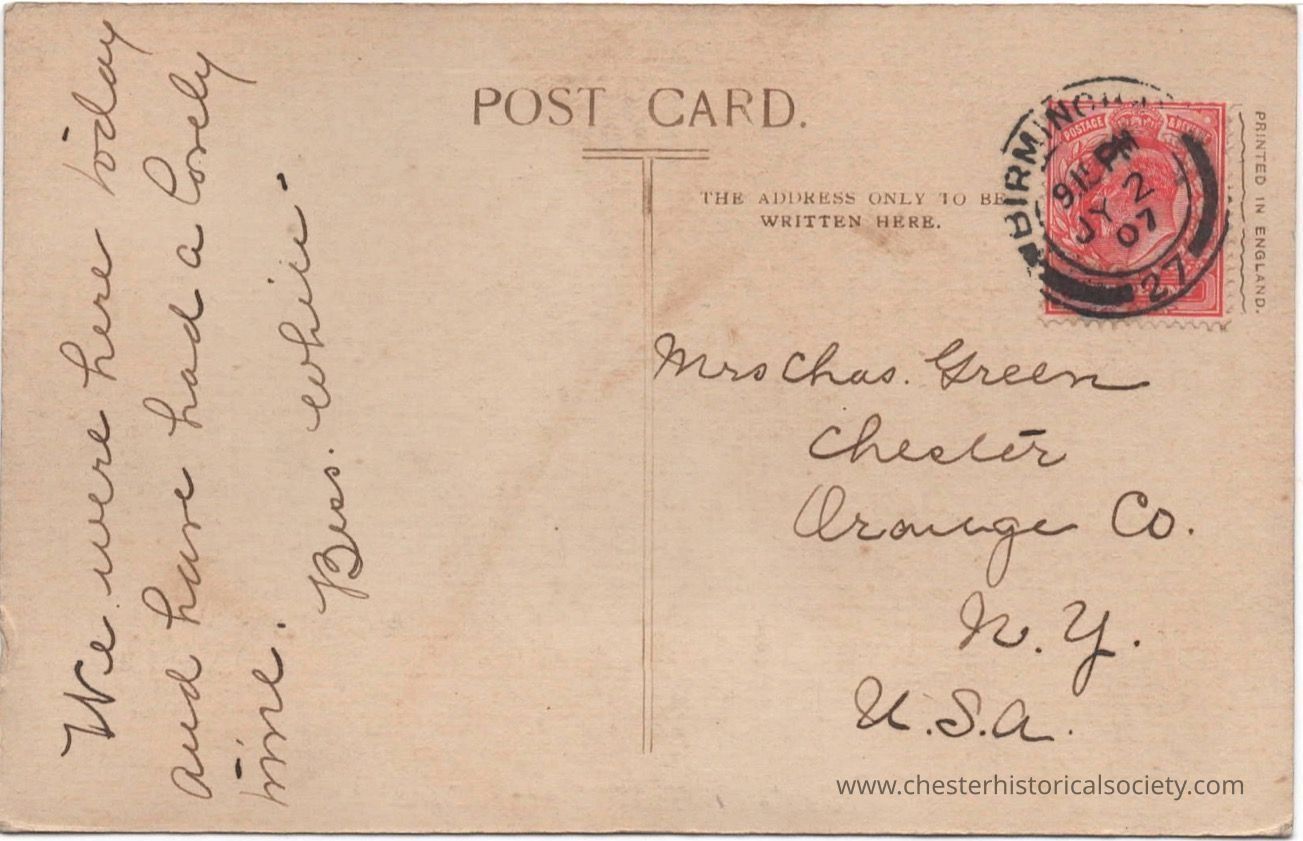 POST CARD.
THE ADDRESS ONLY TO BE
WRITTEN HERE.
PRINTED IN ENGLAND.
BIRMINGHAM
9 15 PM
JY 2
07
27
POSTAGE & REVENUE
We were here today
and have had a lovely
time.
Bess. White.
Mrs Chas. Green
Chester
Orange Co.
N.Y.
U.S.A.
www.chesterhistoricalsociety.com